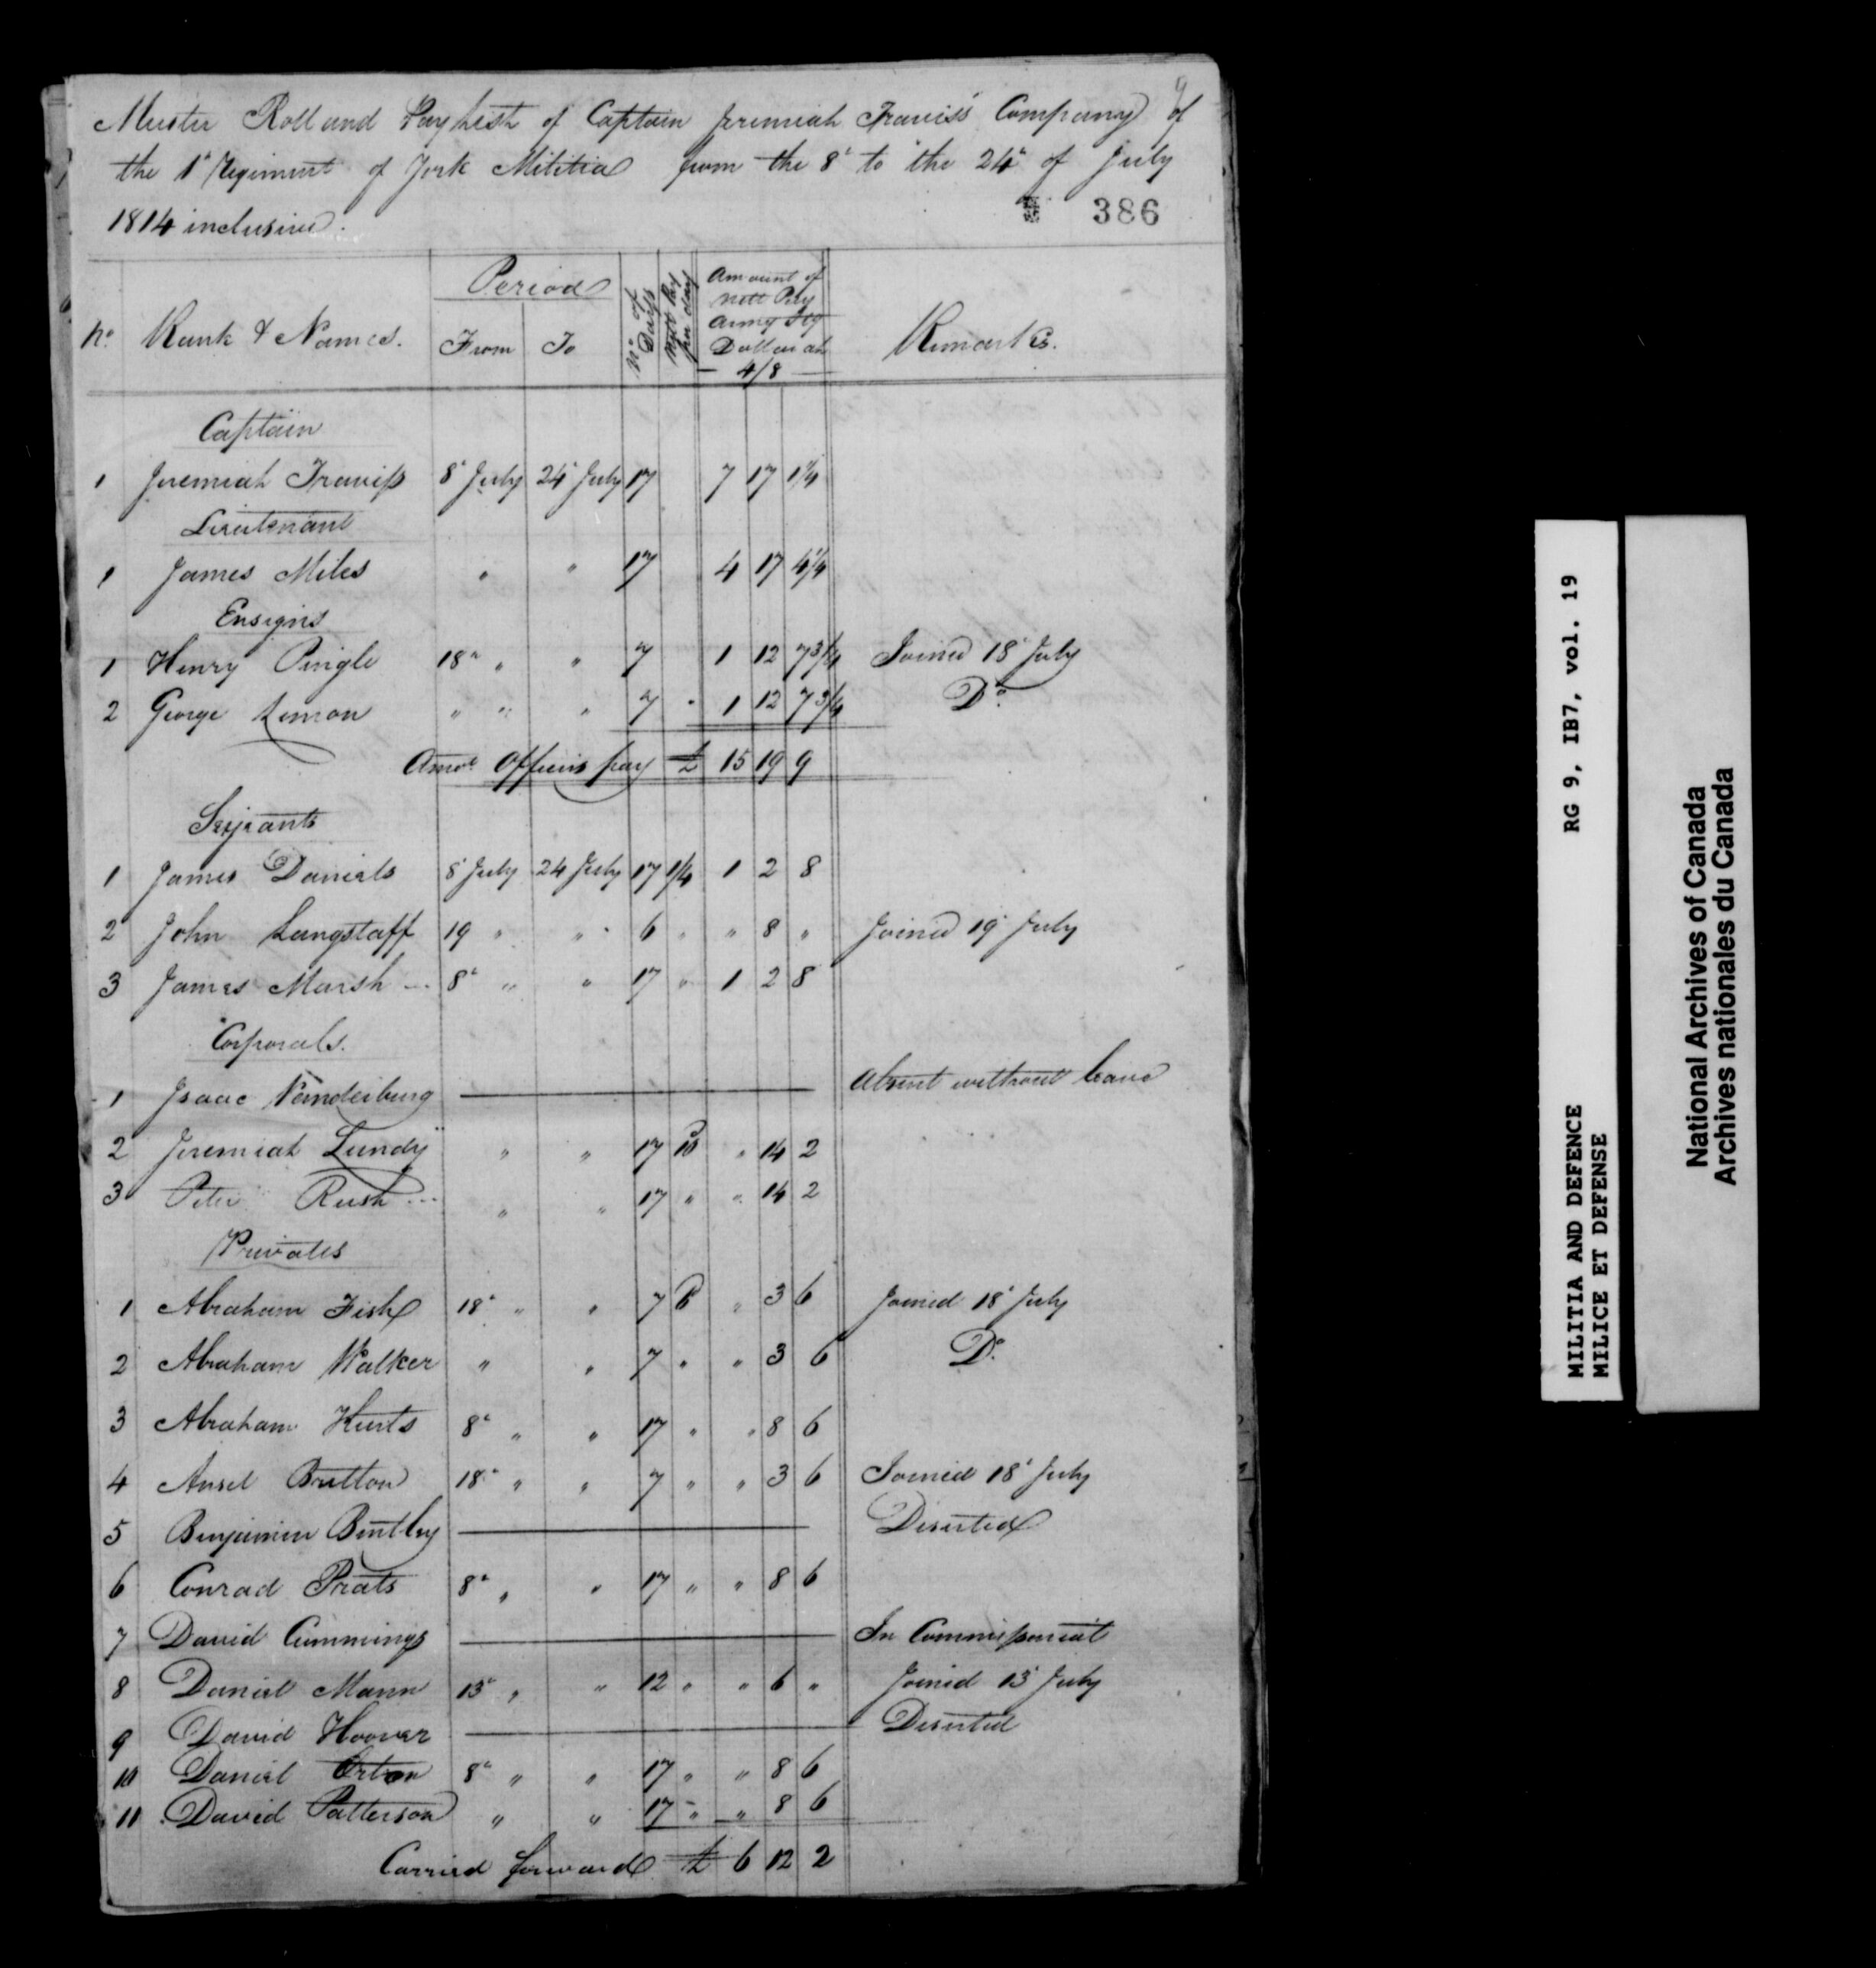 Muster Roll and Pay List of Captain Jeremiah Traviss Company of
the 1t Regiment of York Militia from the 8th to the 24th of July
1814 inclusive.
386
No. Rank & Names. Period From To No. of Days Nett Pay per day Amount of Nett Pay Army Stg Dollar at 4/8 Remarks.
Captain
1 Jeremiah Traviss 8th July 24th July 17 7 17 1 1/4
Lieutenant
1 James Miles " " 17 4 17 4 1/4
Ensigns
1 Henry Pingle 18th " " 7 1 12 7 3/4 Joined 18th July
2 George Lemon " " " 7 " 1 12 7 3/4 Do.
Amot. Officers pay £ 15 19 9
Serjeants
1 James Daniels 8th July 24 July 17 1/4 1 2 8
2 John Langstaff 19 " " 6 " " 8 " Joined 19th July
3 James Marsh 8th " " 17 " 1 2 8
Corporals.
1 Isaac Vanderburg Absent without leave
2 Jeremiah Lundy " " 17 10 " 14 2
3 Peter Rush " " 17 " " 14 2
Privates
1 Abraham Fish 18th " " 7 6 " 3 6 Joined 18th July
2 Abraham Walker " " 7 " " 3 6 Do.
3 Abraham Kurts 8th " " 17 " " 8 6
4 Ansel Britton 18th " " 7 " " 3 6 Joined 18th July
5 Benjamin Bentley Deserted
6 Conrad Prats 8th " " 17 " " 8 6
7 David Cummings In Commissariat
8 Daniel Mann 13th " " 12 " " 6 " Joined 13th July
9 David Hoover Deserted
10 Daniel Orton 8th " " 17 " " 8 6
11 David Patterson " " 17 " " 8 6
Carried forward £ 6 12 2
MILITIA AND DEFENCE RG 9, IB7, vol. 19
MILICE ET DEFENSE
National Archives of Canada
Archives nationales du Canada